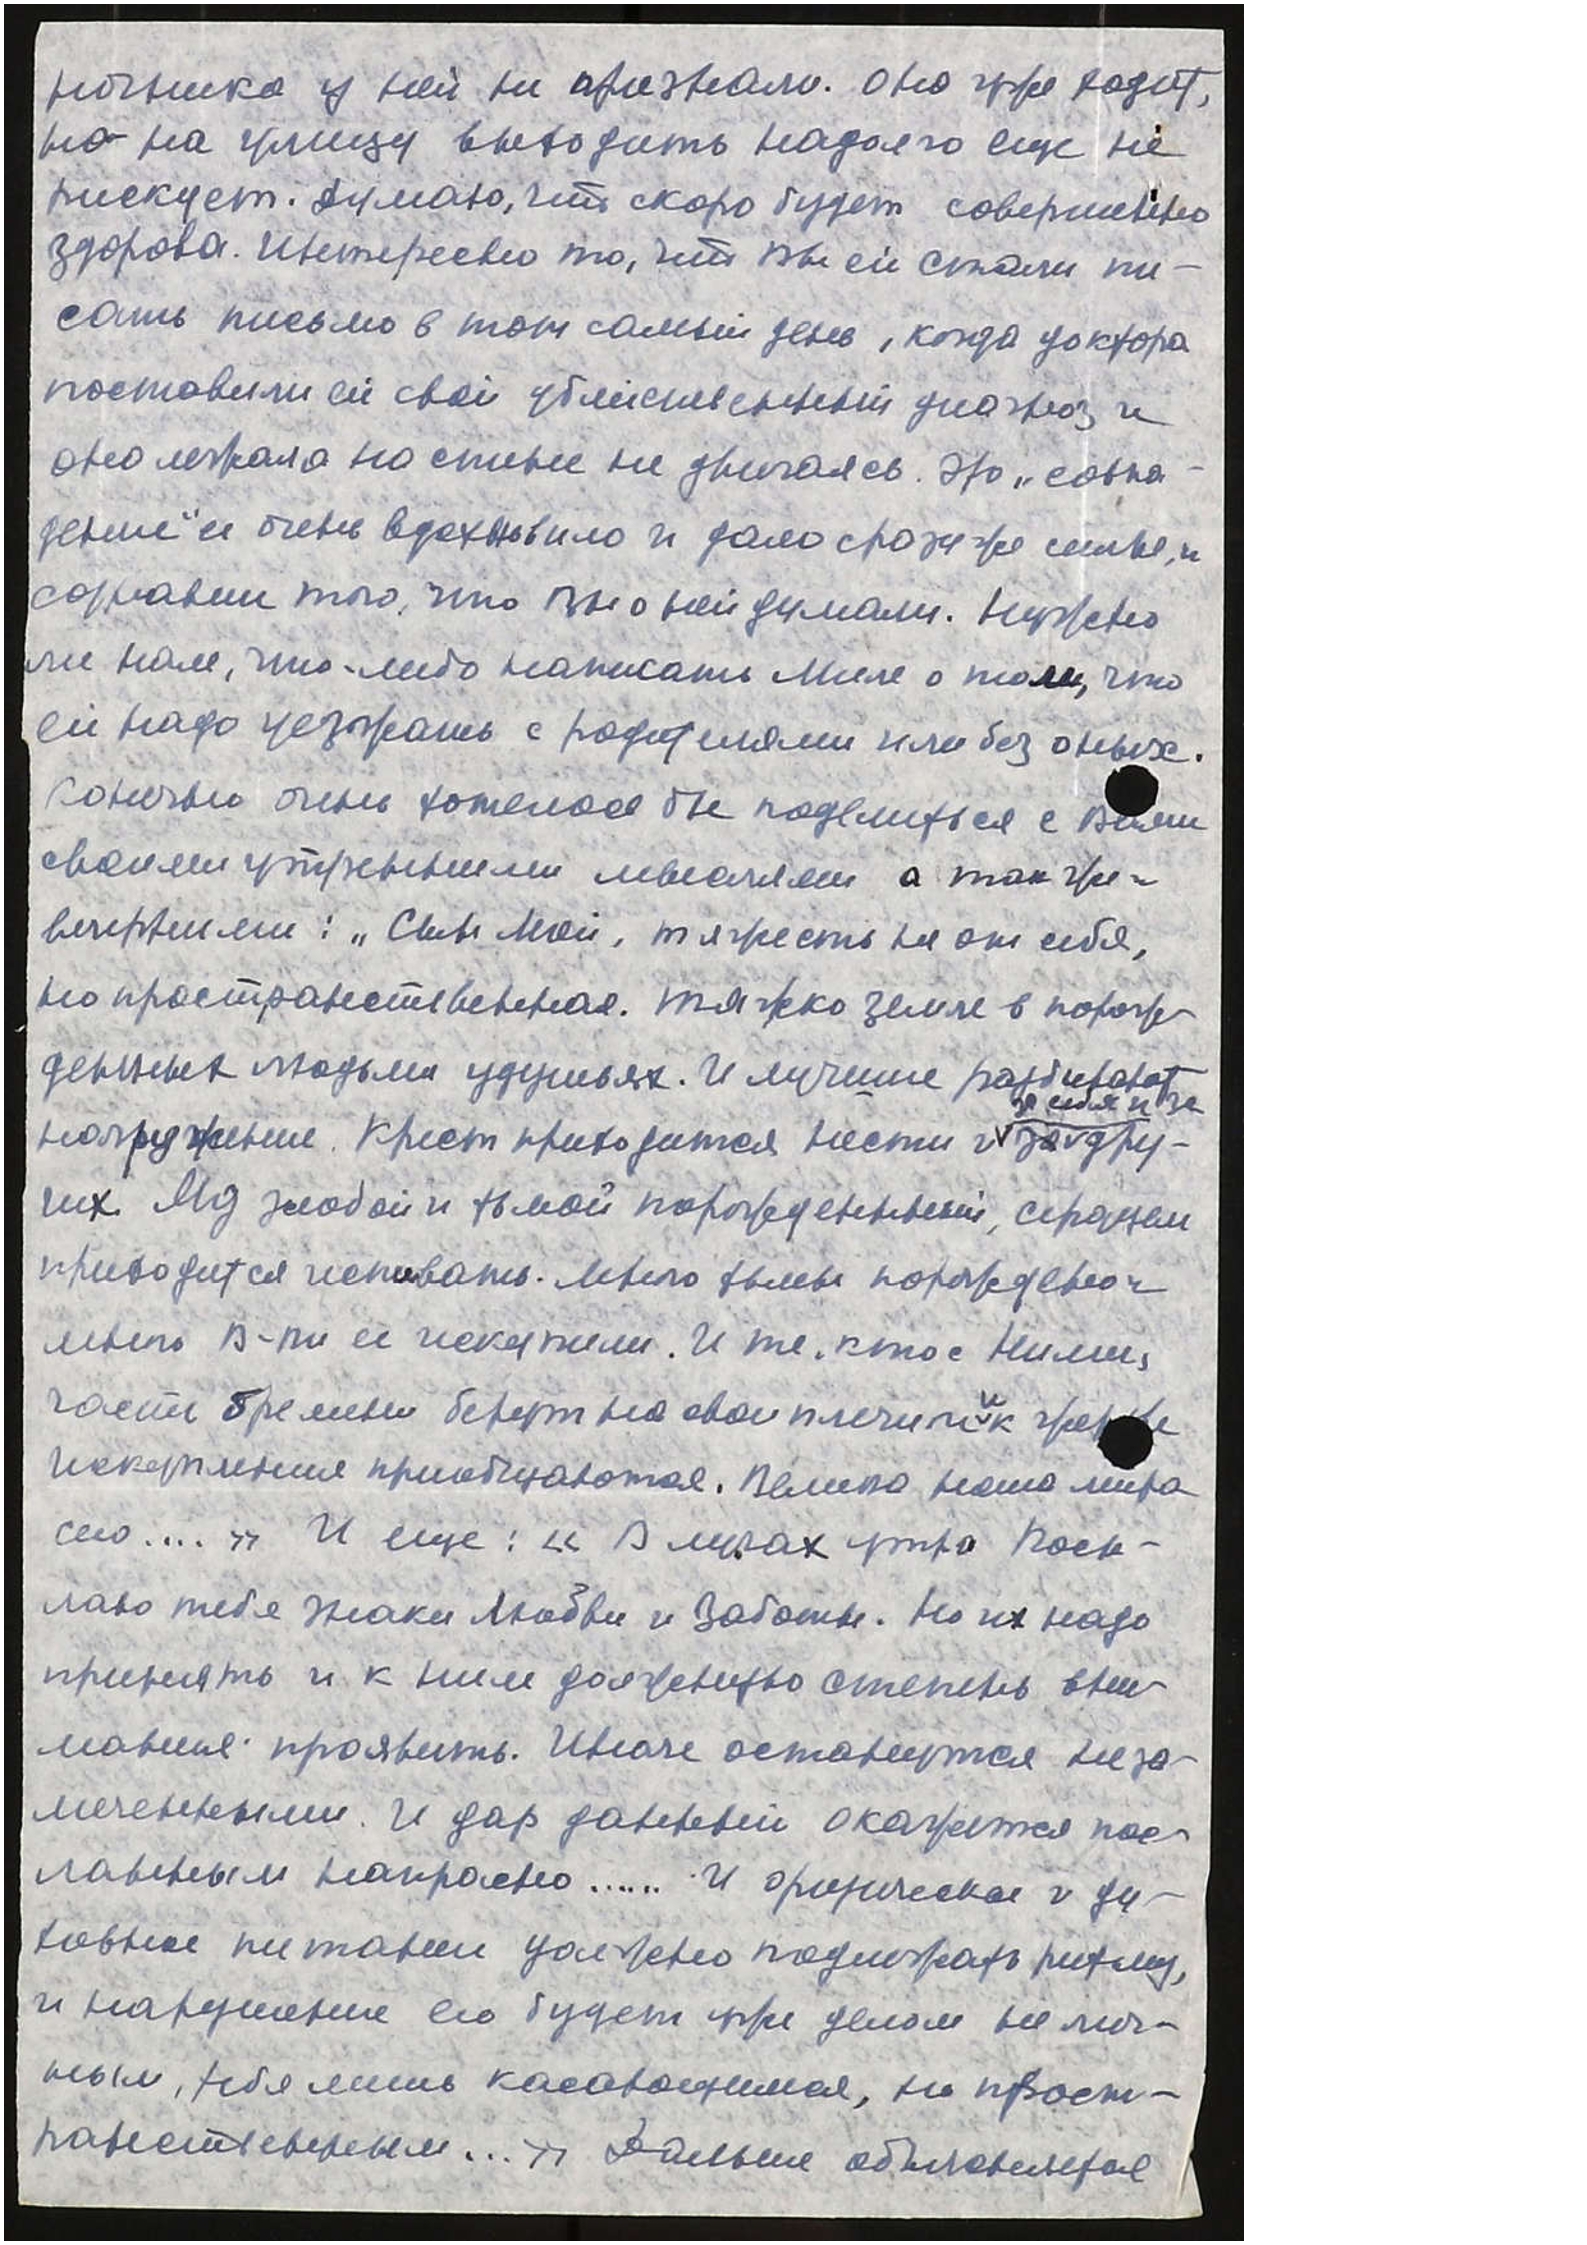 ночника у ней не признали. Она уже ходит,
но на улицу выходить надолго еще не
рискует. Думаю, что скоро будет совершенно
здорова. Интересно то, что Вы ей стали пи-
сать письмо в тот самый день, когда доктора
поставили ей свой убийственный диагноз и
она лежала на спине не двигаясь. Это „совпа-
дение" ее очень вдохновило и дало сразу же силы, и
сознание того, что Вы о ней думали. Нужно
ли нам, что-либо написать Миле о том, что
ей надо уезжать с родителями или без оных.
Конечно очень хотелось бы поделиться с Вами
своими утренними мыслями а также
вечерними: „Сын Мой, тяжесть не от себя,
но пространственная. Тяжко Земле в порож-
денных людьми удушьях. И лучшие разбивают
нагруженье. Крест приходится нести и за себя и за дру-
гих. Яд злобой и тьмой порожденный, сердцем
приходится испивать. Много тьмы порождено и
много В-ки ее искупили. И те, кто с Ними,
часть бремени берут на свои плечи и к чаше
искупления приобщаются. Велика наша мира
сио.... » И еще: « В лучах утра Посы-
лаю тебе знаки Любви и Заботы. Но их надо
принять и к ним должную степень вни-
мания проявить. Иначе останутся неза-
меченными. И дар данный окажется пос-
ланным напрасно...... И физическое и ду-
ховное питание должно подлежать ритму,
и нарушение его будет уже делом не лич-
ным, тебя лишь касающимся, но прост-
ранственным... » Дальше объясняется